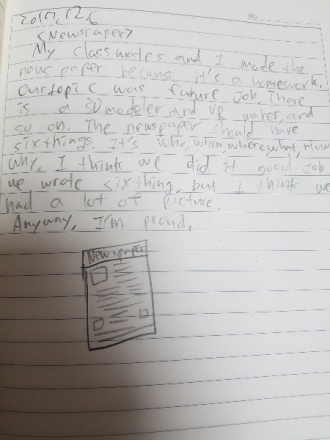 2017, 12, 6
<Newspaper>
My classmates and I made the
news paper because it's a homework.
Our topic was future job. There
is a 3D modeler and VR water, and
so on. The newspaper should have
six things. It's who, when, where, what, How
why, I think we did it good job
we wrote six thing, but I think we
had a lot of picture.
Anyway, I'm proud.
Newspaper